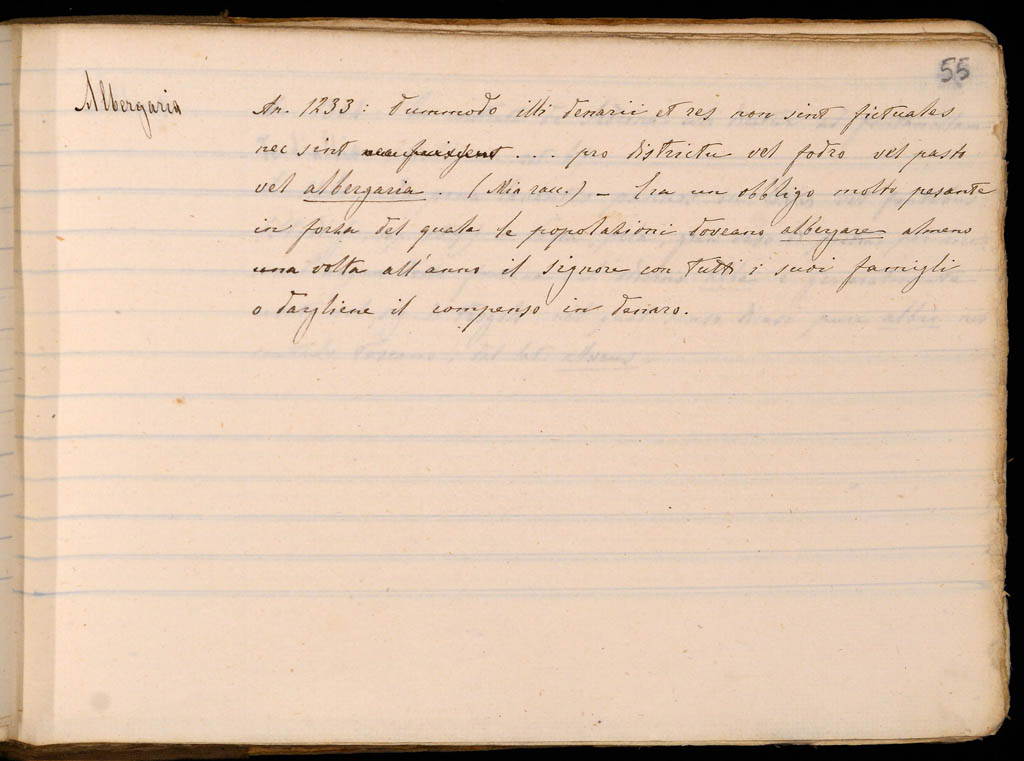 55
Albergaria
An. 1233: dummodo illi denarii et res non sint fictuales
nec sint ... pro districtu vel fodro vel pasto
vel albergaria. (Mia racc.) - Era un obbligo molto pesante
in forza del quale le popolazioni doveano albergare almeno
una volta all'anno il signore con tutti i suoi famigli
o dargliene il compenso in denaro.